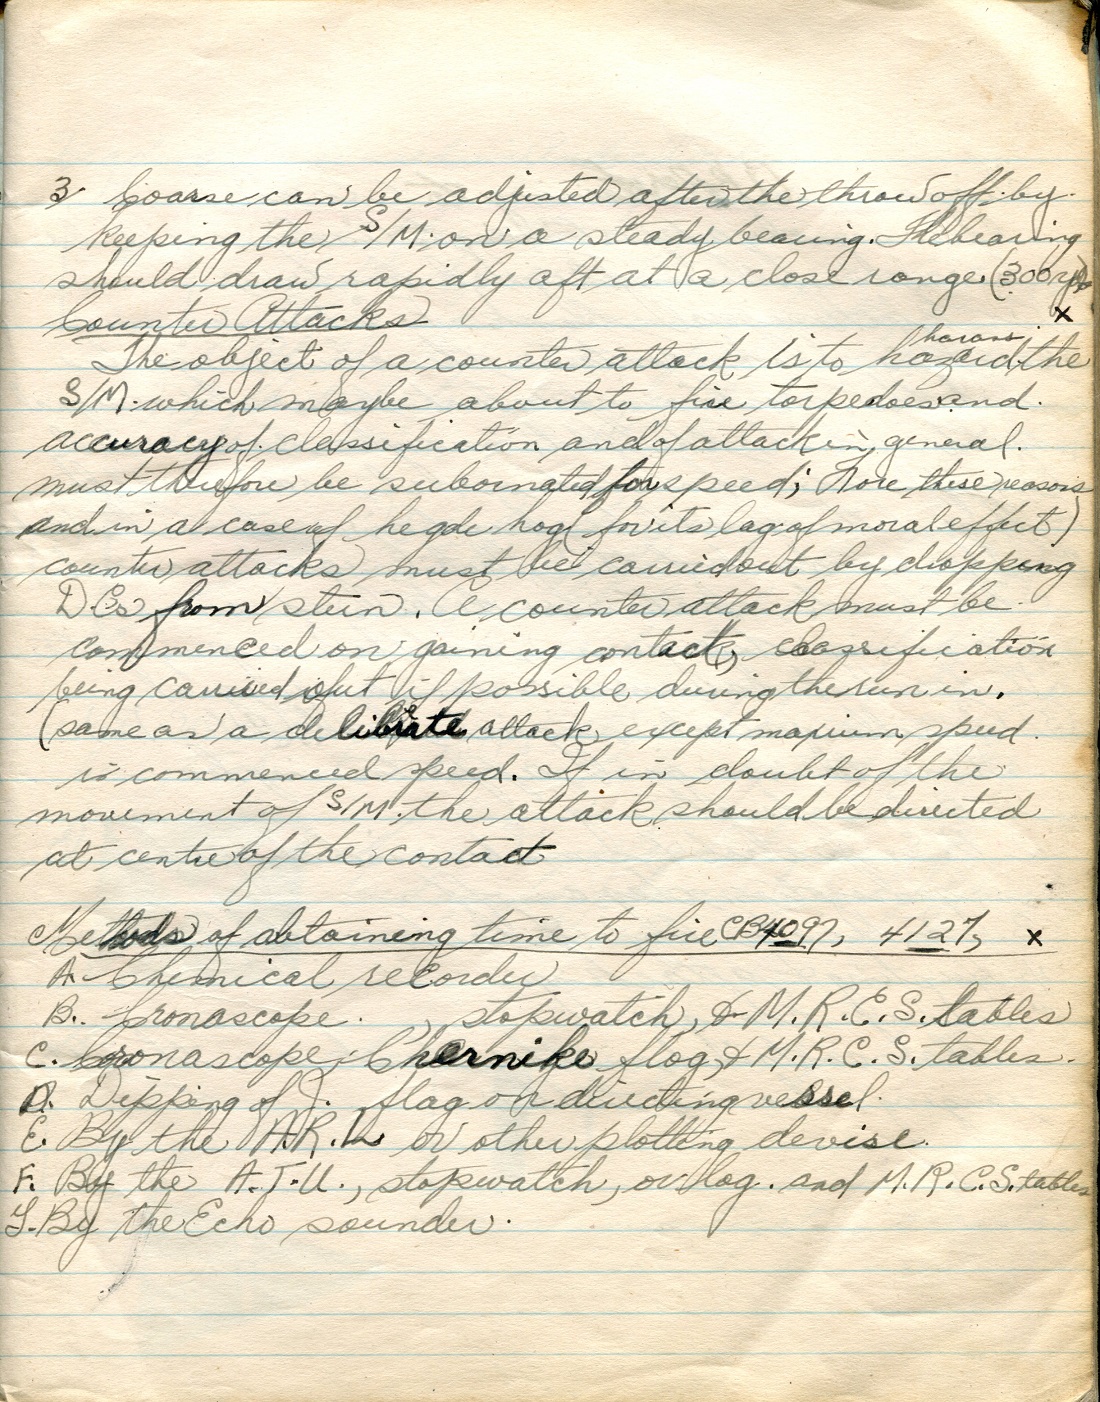 3. Coarse can be adjusted after the throw off by
keeping the S/M. on a steady bearing. The bearing
should draw rapidly aft at a close range. (300 yds
Counter Attacks x
harass
The object of a counter attack is to hazard the
S/M. which maybe about to fire torpedoes and.
accuracy of classification and of attack in general.
must therefore be subornated for speed; For these reasons
and in a case of hegde hog (for its lag of moral effect)
counter attacks must be carried out by dropping
D Cs from stern. A counter attack must be
commenced on gaining contact, classification
being carried out if possible during the run in.
(same as a deliberate attack except maxium speed.
is commenced speed. If in doubt of the
movement of S/M. the attack should be directed
at centre of the contact
Methods of obtaining time to fire CB4097, 4127, x
A. Chemical recorder
B. Cronascope. , stopwatch, & M.R.C.S. tables
C. Cronascope, Chernike flog, & M.R.C.S. tables.
D. Dipping of J. flag on directing vessel.
E. By the A.R.L. or other plotting devise.
F. By the A.T.U., stopwatch, or log. and M.R.C.S. tables
G. By the Echo sounder.